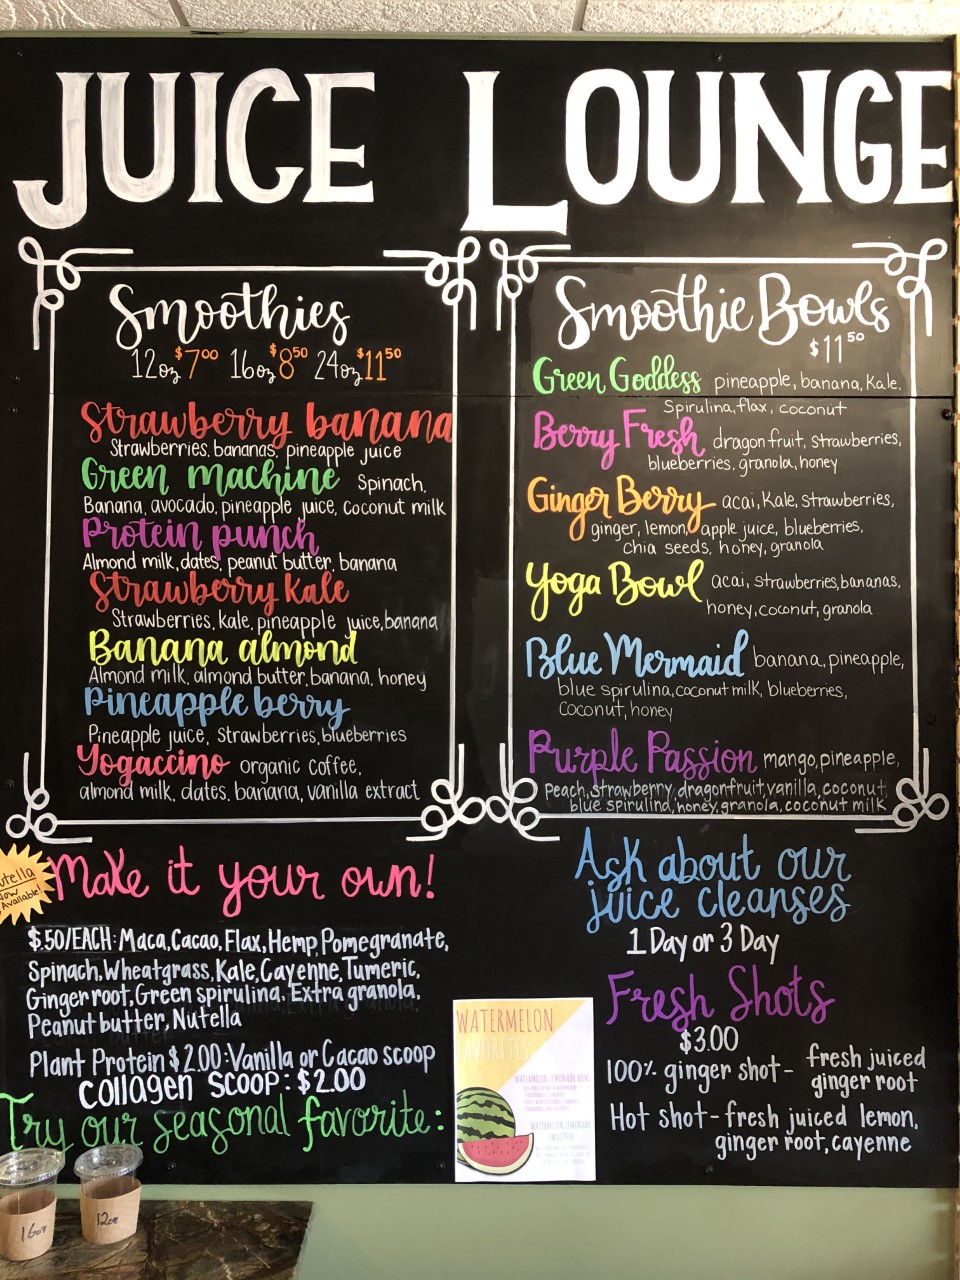 JUICE LOUNGE
Smoothies
12oz $7.00 16oz $8.50 24oz $11.50
Strawberry banana
Strawberries, bananas, pineapple juice
Green machine Spinach,
Banana, avocado, pineapple juice, coconut milk
Protein punch
Almond milk, dates, peanut butter, banana
Strawberry Kale
Strawberries, kale, pineapple juice, banana
Banana almond
Almond milk, almond butter, banana, honey
Pineapple berry
Pineapple juice, Strawberries, blueberries
Yogaccino organic coffee,
almond milk, dates, banana, vanilla extract
Smoothie Bowls
$11.50
Green Goddess pineapple, banana, Kale,
Spirulina, flax, coconut
Berry Fresh dragonfruit, strawberries,
blueberries, granola, honey
Ginger Berry acai, Kale, strawberries,
ginger, lemon, apple juice, blueberries,
chia seeds, honey, granola
Yoga Bowl acai, strawberries, bananas,
honey, coconut, granola
Blue Mermaid banana, pineapple,
blue spirulina, coconut milk, blueberries,
Coconut, honey
Purple Passion mango, pineapple,
peach, strawberry, dragonfruit, vanilla, coconut,
blue spirulina, honey, granola, coconut milk
Now
Available!
Make it your own!
$.50/EACH: Maca, Cacao, Flax, Hemp, Pomegranate,
Spinach, Wheatgrass, Kale, Cayenne, Tumeric,
Ginger root, Green spirulina, Extra granola,
Peanut butter, Nutella
Plant Protein $2.00: Vanilla or Cacao scoop
Collagen scoop: $2.00
Try our seasonal favorite:
WATERMELON
FAVORITES
WATERMELON LEMONADE BOWL
WATERMELON LEMONADE
SMOOTHIE
Ask about our
juice cleanses
1 Day or 3 Day
Fresh Shots
$3.00
100% ginger shot - fresh juiced
ginger root
Hot shot - fresh juiced lemon,
ginger root, cayenne
16oz
12oz